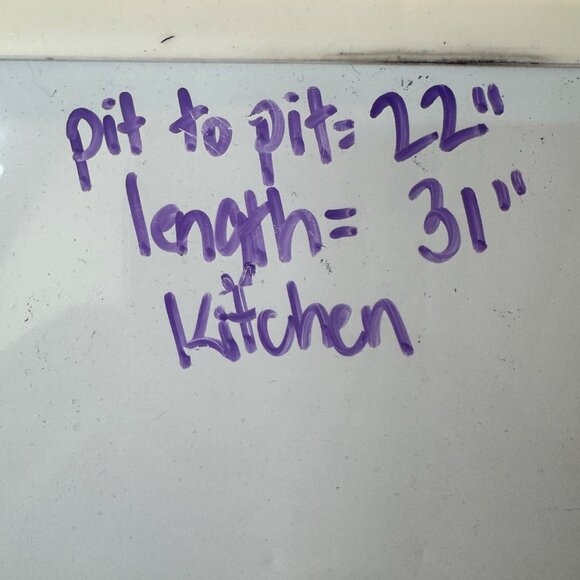 pit to pit= 22"
length= 31"
Kitchen